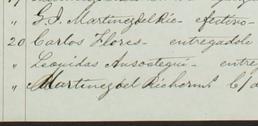 " G. I. Martinez del Rio - efectivo -
20 Carlos Flores - entregadole
" Leonidas Ansostegui - entre
" Martinez del Rio hermº c/a